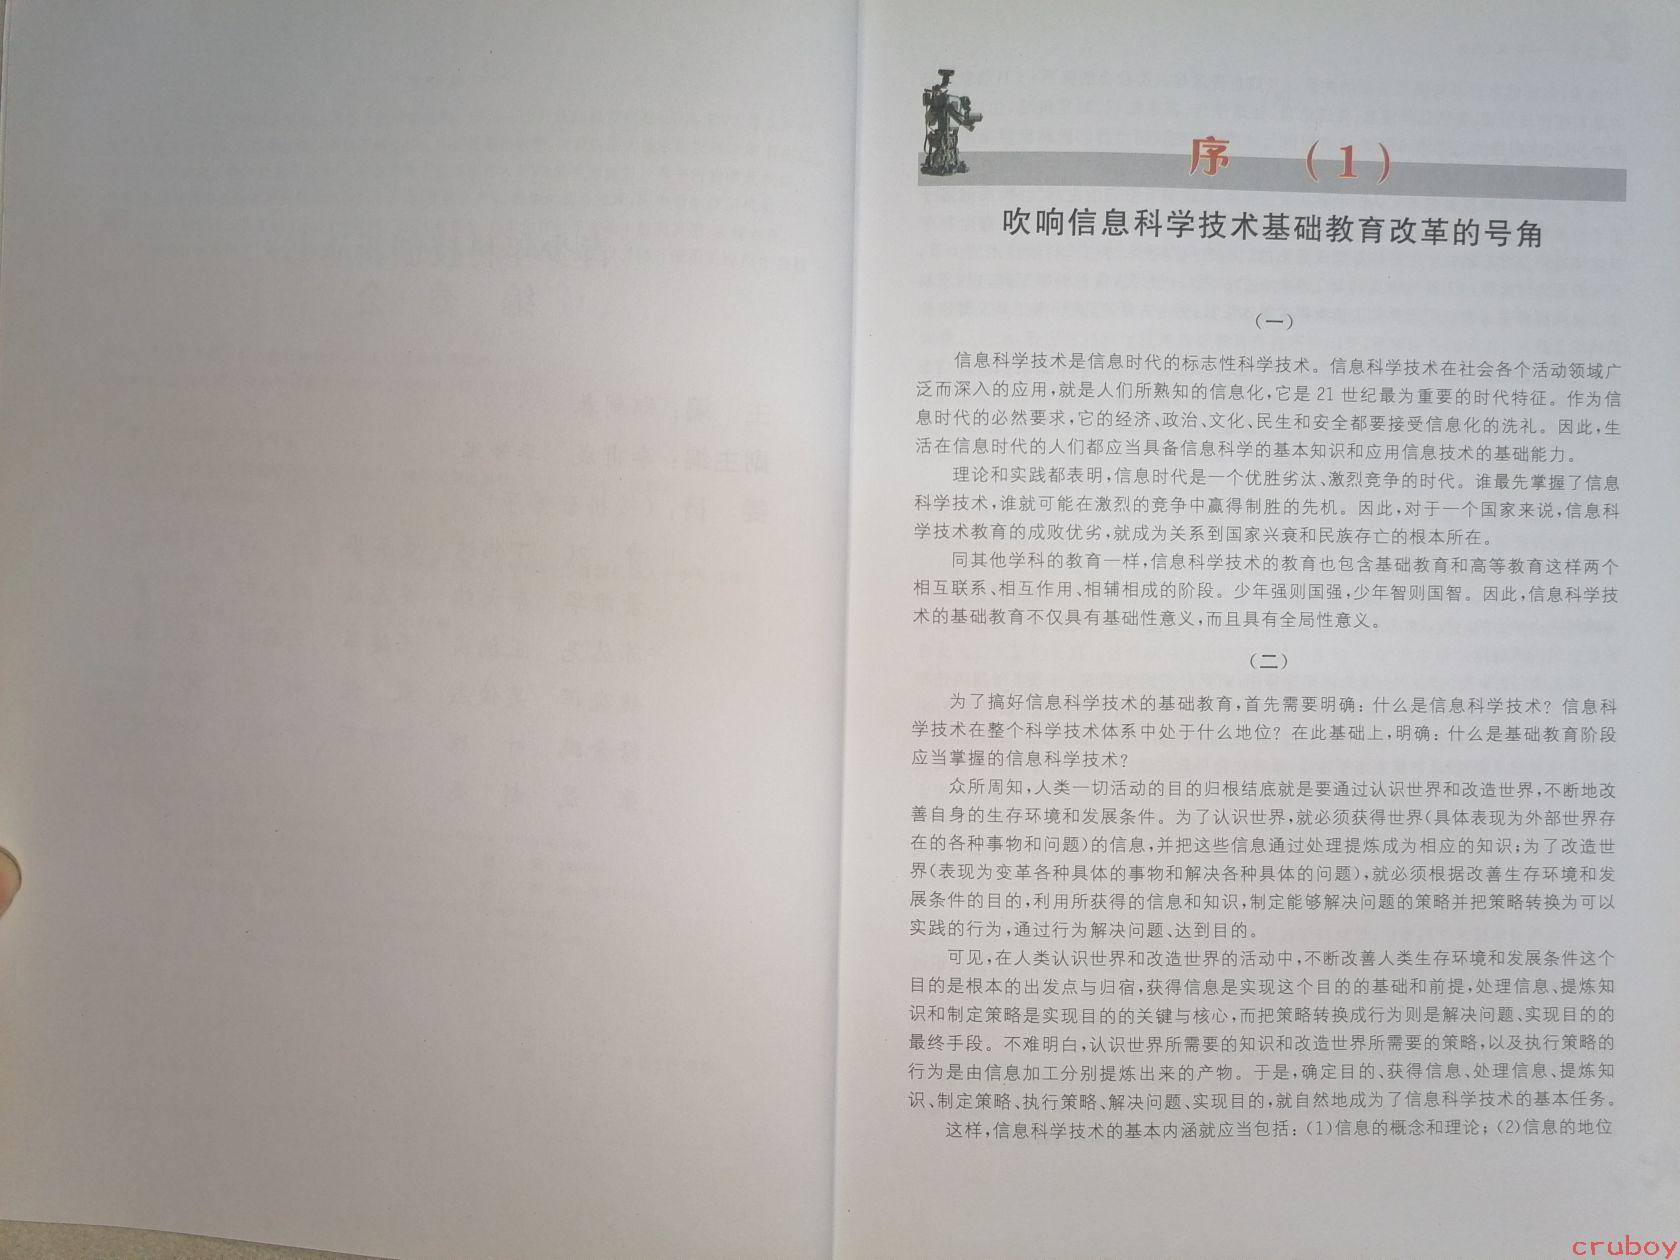 序 （1）
吹响信息科学技术基础教育改革的号角
（一）
信息科学技术是信息时代的标志性科学技术。信息科学技术在社会各个活动领域广
泛而深入的应用，就是人们所熟知的信息化，它是 21 世纪最为重要的时代特征。作为信
息时代的必然要求，它的经济、政治、文化、民生和安全都要接受信息化的洗礼。因此，生
活在信息时代的人们都应当具备信息科学的基本知识和应用信息技术的基础能力。
理论和实践都表明，信息时代是一个优胜劣汰、激烈竞争的时代。谁最先掌握了信息
科学技术，谁就可能在激烈的竞争中赢得制胜的先机。因此，对于一个国家来说，信息科
学技术教育的成败优劣，就成为关系到国家兴衰和民族存亡的根本所在。
同其他学科的教育一样，信息科学技术的教育也包含基础教育和高等教育这样两个
相互联系、相互作用、相辅相成的阶段。少年强则国强，少年智则国智。因此，信息科学技
术的基础教育不仅具有基础性意义，而且具有全局性意义。
（二）
为了搞好信息科学技术的基础教育，首先需要明确：什么是信息科学技术？信息科
学技术在整个科学技术体系中处于什么地位？在此基础上，明确：什么是基础教育阶段
应当掌握的信息科学技术？
众所周知，人类一切活动的目的归根结底就是要通过认识世界和改造世界，不断地改
善自身的生存环境和发展条件。为了认识世界，就必须获得世界（具体表现为外部世界存
在的各种事物和问题）的信息，并把这些信息通过处理提炼成为相应的知识；为了改造世
界（表现为变革各种具体的事物和解决各种具体的问题），就必须根据改善生存环境和发
展条件的目的，利用所获得的信息和知识，制定能够解决问题的策略并把策略转换为可以
实践的行为，通过行为解决问题、达到目的。
可见，在人类认识世界和改造世界的活动中，不断改善人类生存环境和发展条件这个
目的是根本的出发点与归宿，获得信息是实现这个目的的基础和前提，处理信息、提炼知
识和制定策略是实现目的的关键与核心，而把策略转换成行为则是解决问题、实现目的的
最终手段。不难明白，认识世界所需要的知识和改造世界所需要的策略，以及执行策略的
行为是由信息加工分别提炼出来的产物。于是，确定目的、获得信息、处理信息、提炼知
识、制定策略、执行策略、解决问题、实现目的，就自然地成为了信息科学技术的基本任务。
这样，信息科学技术的基本内涵就应当包括：（1）信息的概念和理论；（2）信息的地位
cruboy